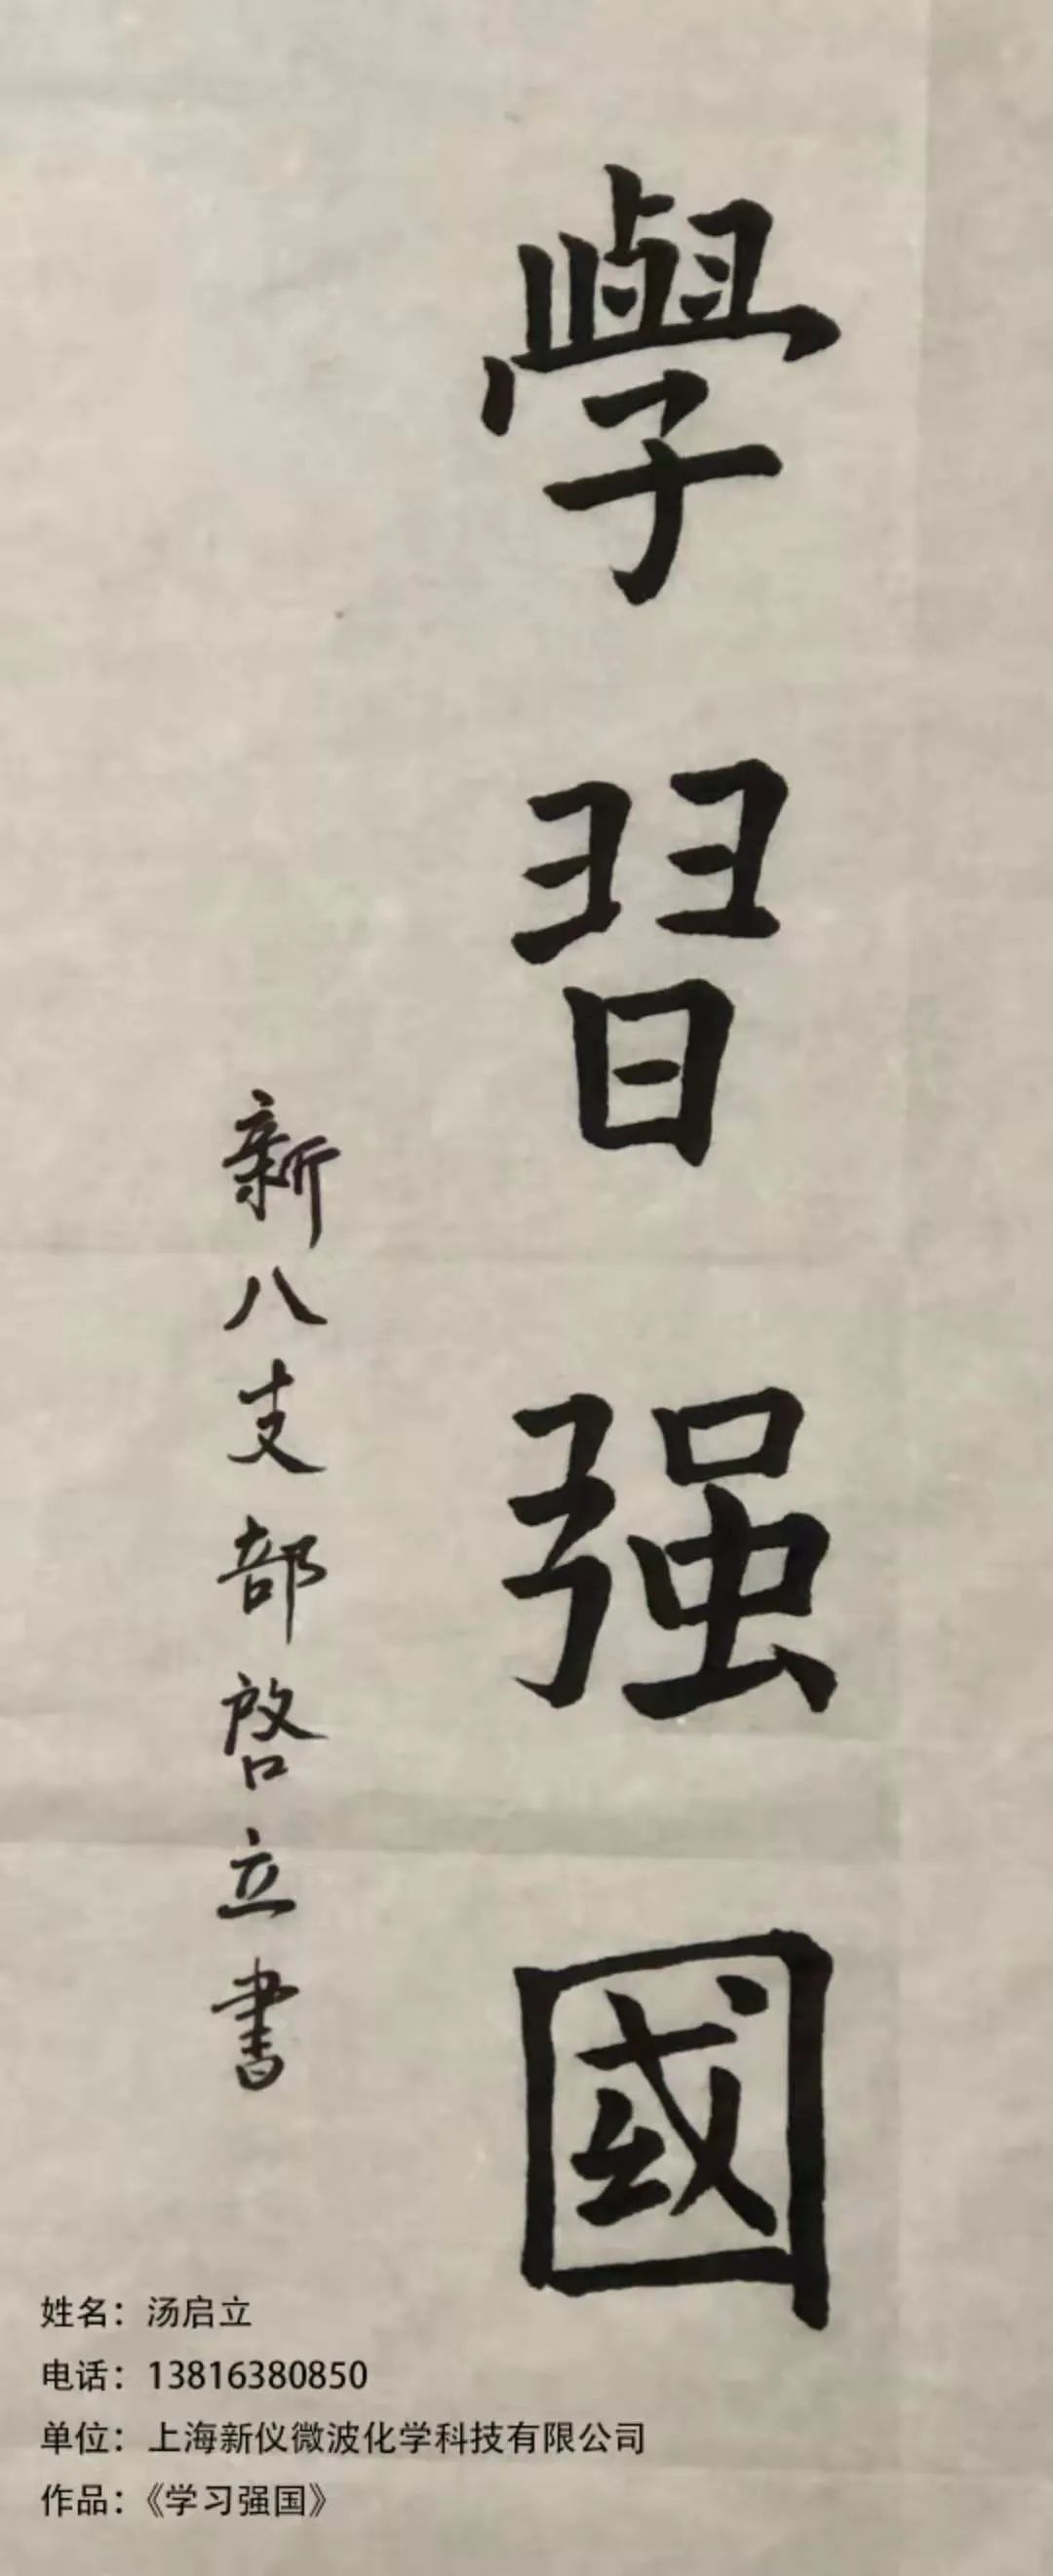 學習强國
新八支部啓立書
姓名：汤启立
电话：13816380850
单位：上海新仪微波化学科技有限公司
作品：《学习强国》